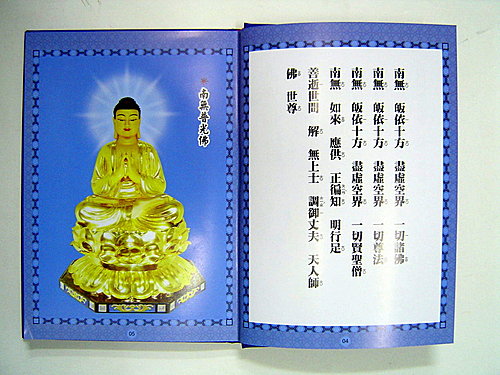 南無 皈依十方 盡虛空界 一切諸佛
南無 皈依十方 盡虛空界 一切尊法
南無 皈依十方 盡虛空界 一切賢聖僧
南無 如來 應供 正徧知 明行足
善逝世間 解 無上士 調御丈夫 天人師
佛 世尊
04
南無普光佛
05